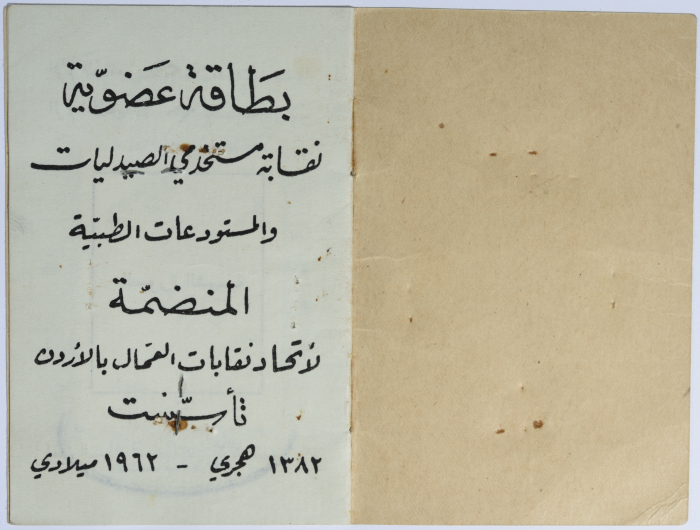 بطاقة عضوّية
نقابة مستخدمي الصيدليات
والمستودعات الطبيّة
المنضمّة
لأتحاد نقابات العمّال بالأردن
تأسّست
١٣٨٢ هجري - ١٩٦٢ ميلادي